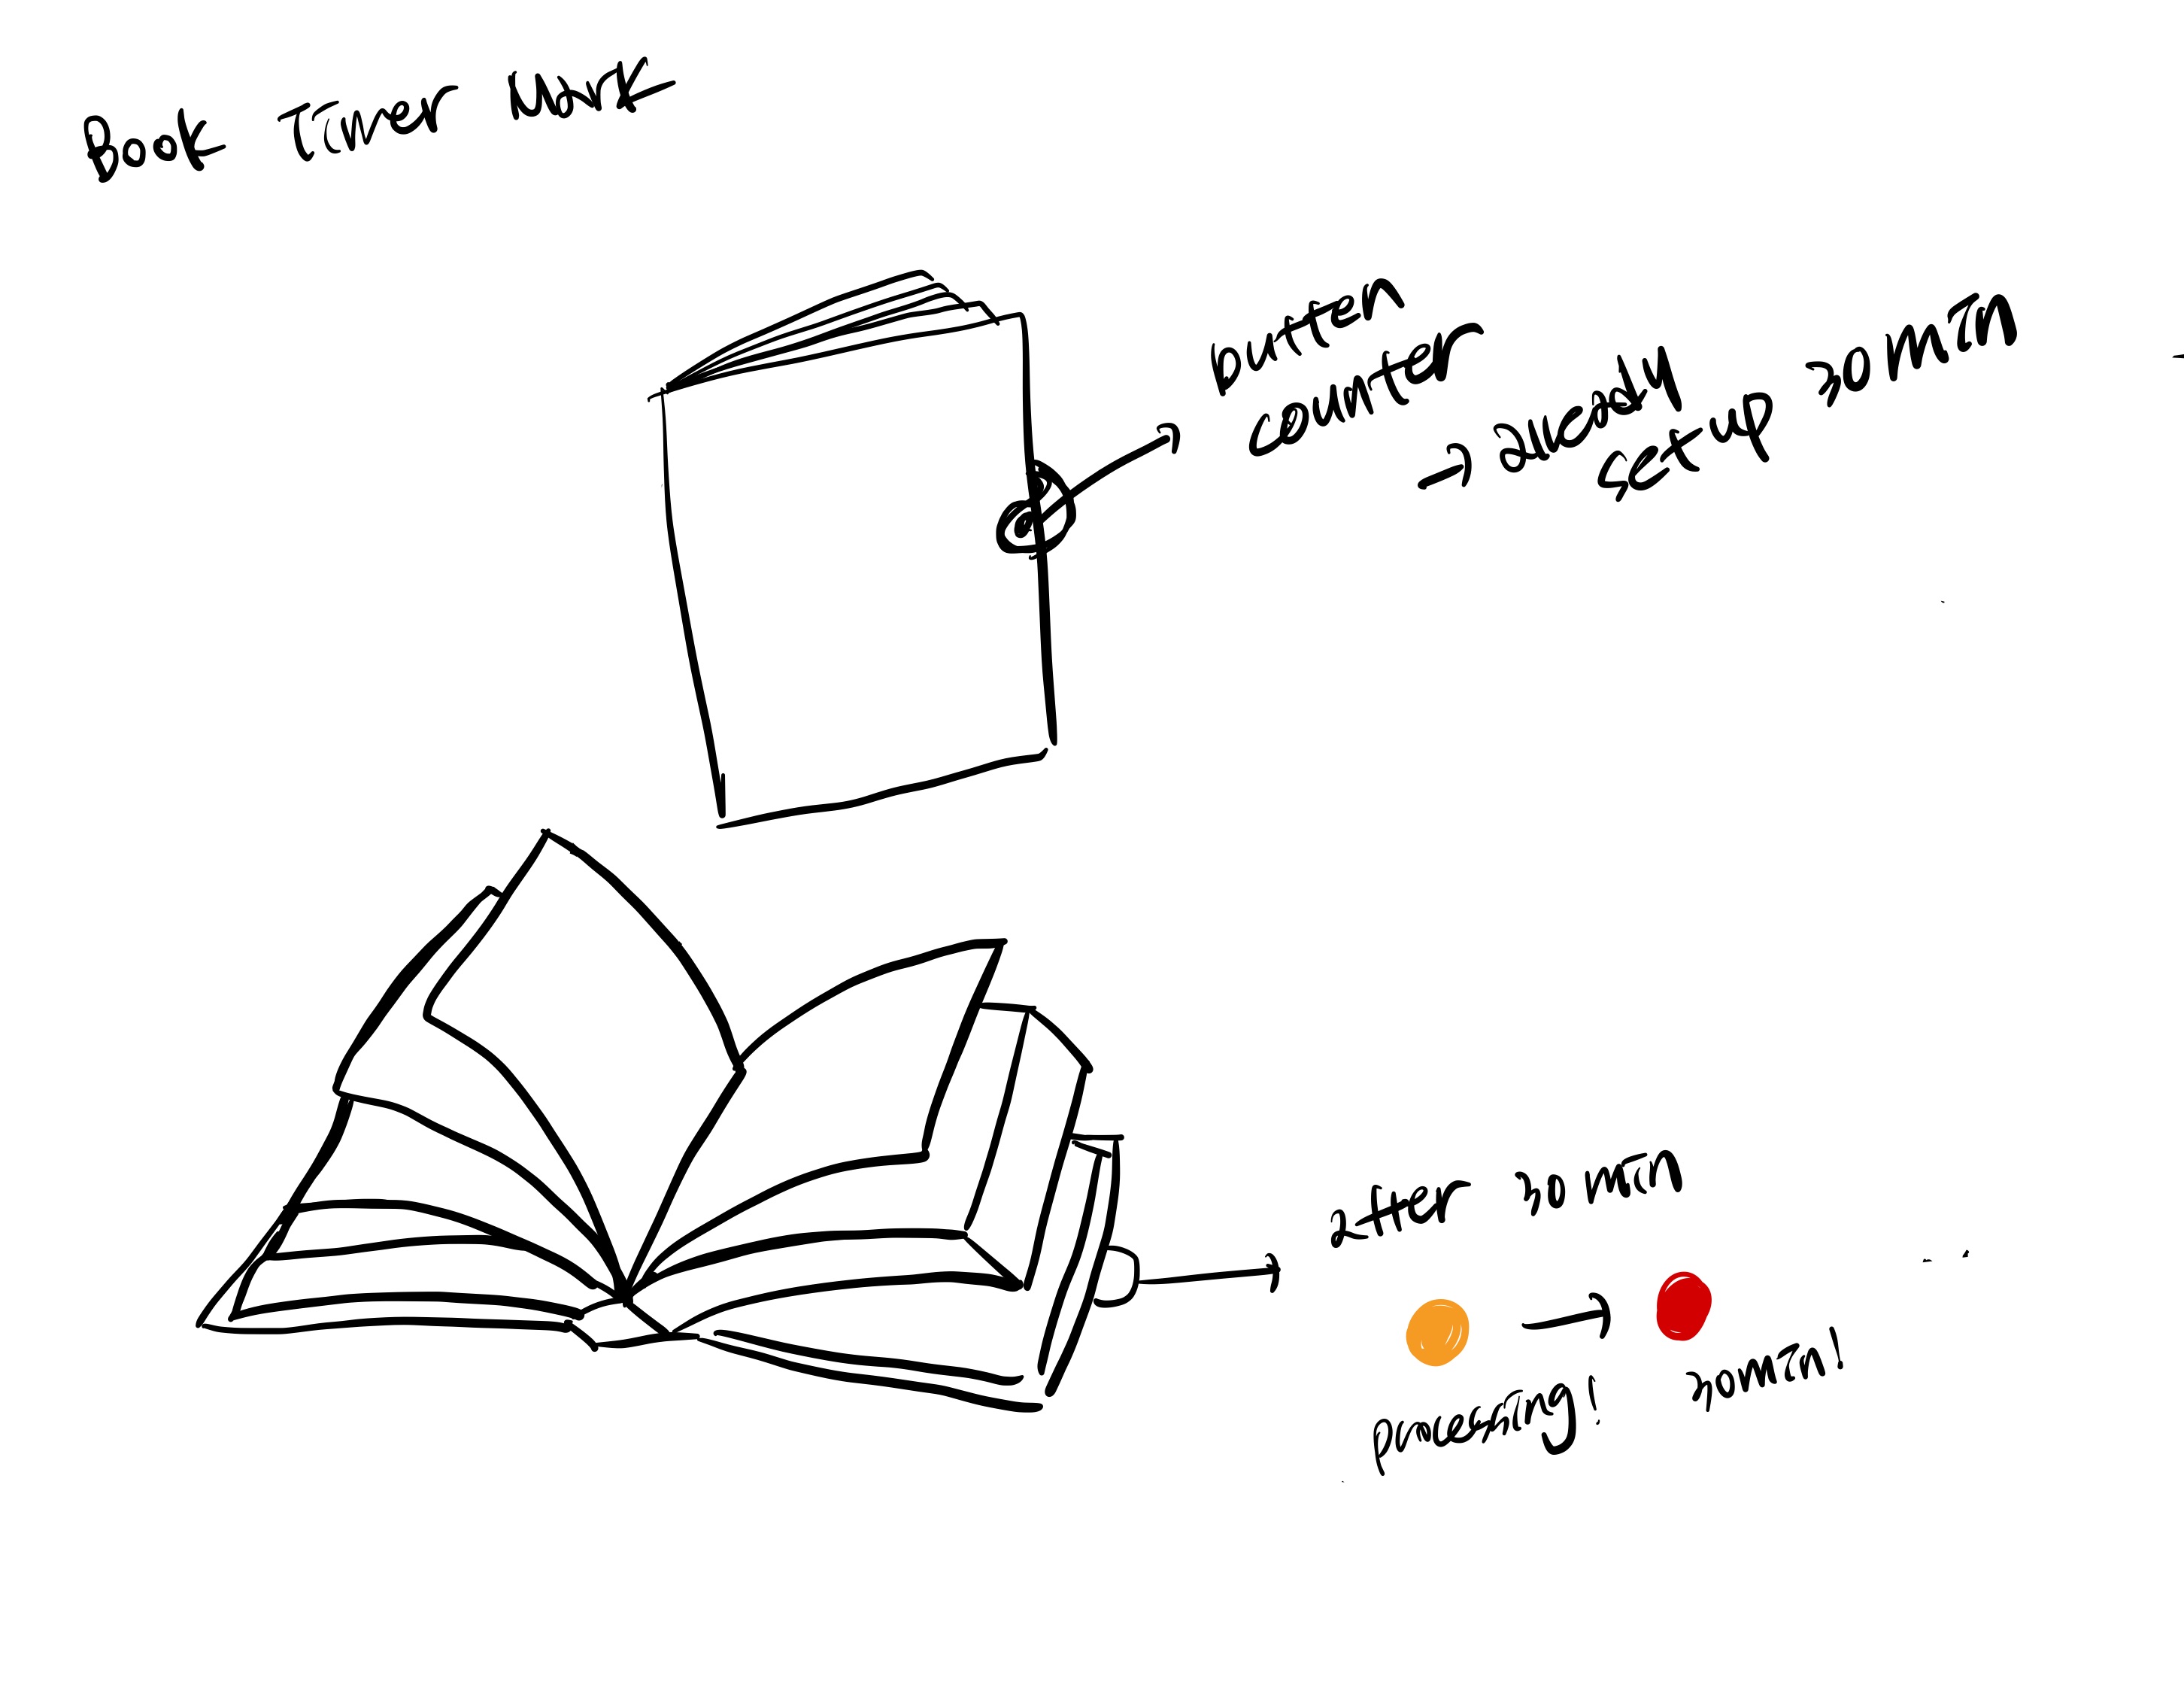 Book Timer Mark
button
counter
already
setup 30 min
after 30 min
processing!
30 min!